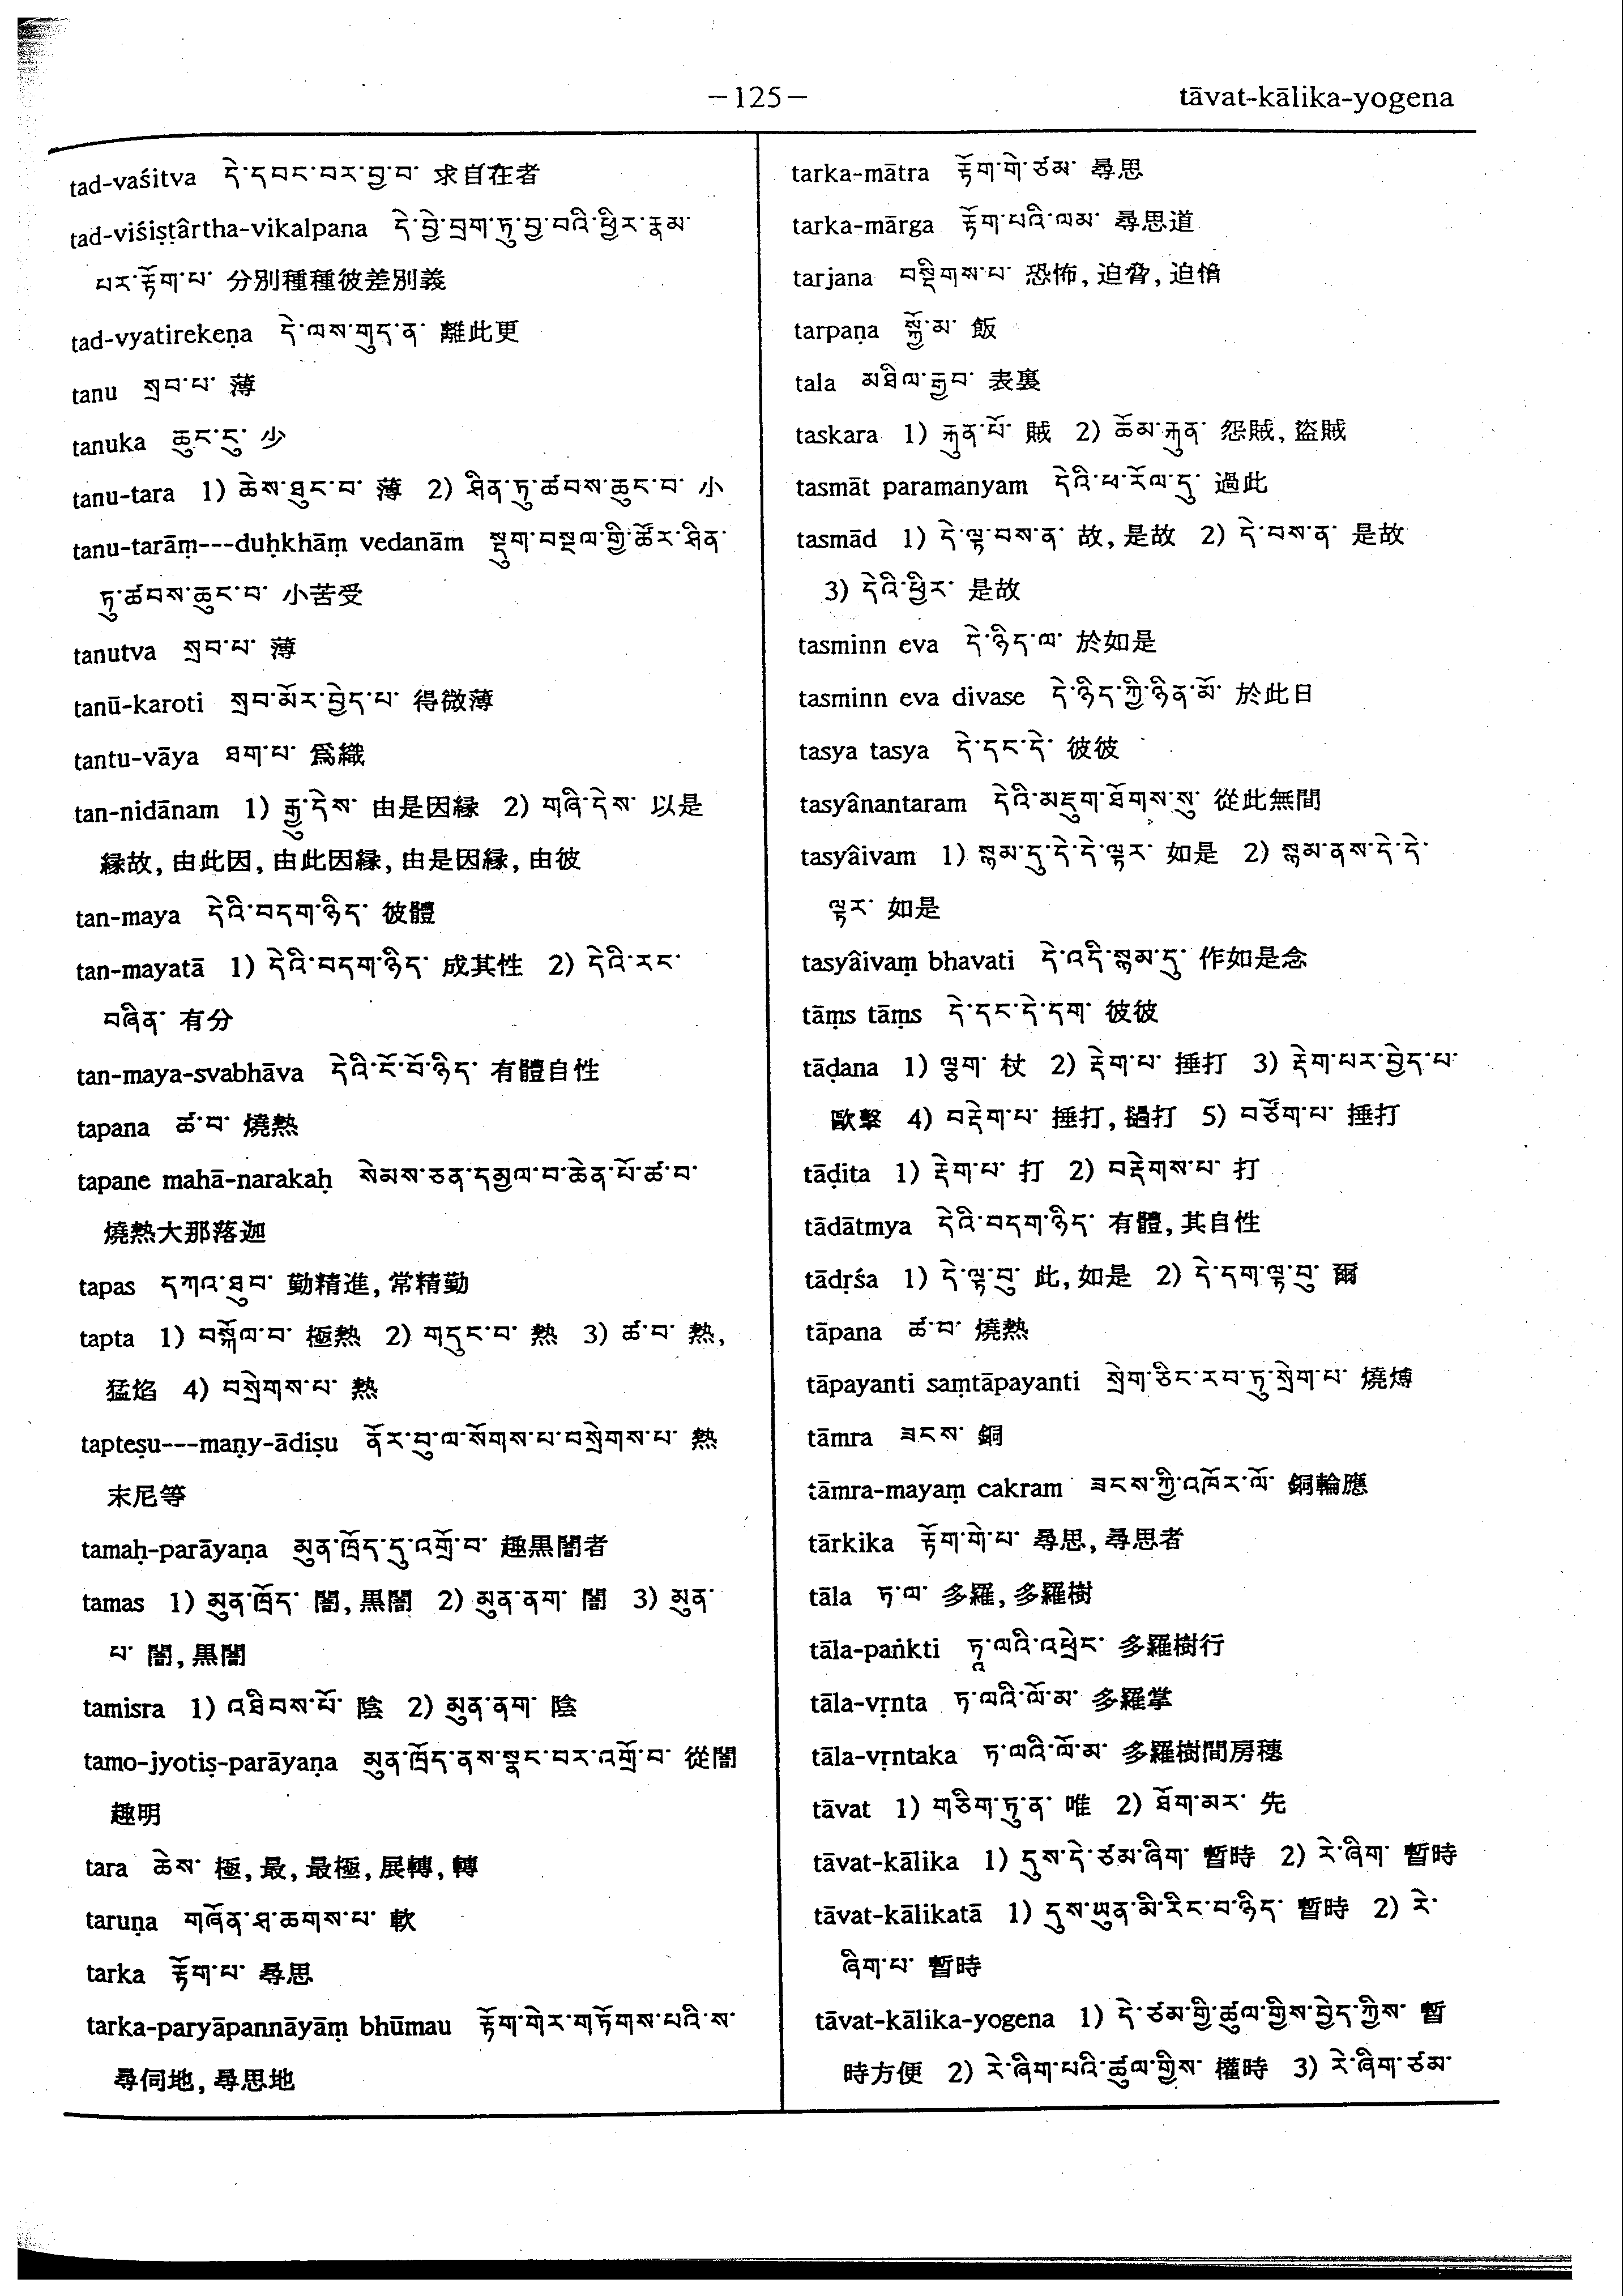 —125—
tāvat-kālika-yogena
tad-vaśitva དེ་དབང་བར་བྱ་བ་ 求自在者
tad-viśiṣṭârtha-vikalpana དེ་བྱེ་བྲག་ཏུ་བྱ་བའི་ཕྱིར་རྣམ་
པར་རྟོག་པ་ 分別種種彼差別義
tad-vyatirekeṇa དེ་ལས་གུད་ན་ 離此更
tanu སྲབ་པ་ 薄
tanuka ཆུང་ངུ་ 少
tanu-tara 1) ཆེས་ཐུང་བ་ 薄 2) ཤིན་ཏུ་ཚབས་ཆུང་བ་ 小
tanu-tarāṃ---duḥkhāṃ vedanām སྡུག་བསྔལ་གྱི་ཚོར་ཤིན་
ཏུ་ཚབས་ཆུང་བ་ 小苦受
tanutva སྲབ་པ་ 薄
tanū-karoti སྲབ་མོར་བྱེད་པ་ 得微薄
tantu-vāya ཐག་པ་ 爲織
tan-nidānam 1) རྒྱུ་དེས་ 由是因縁 2) གཞི་དེས་ 以是
縁故, 由此因, 由此因縁, 由是因縁, 由彼
tan-maya དེའི་བདག་ཉིད་ 彼體
tan-mayatā 1) དེའི་བདག་ཉིད་ 成其性 2) དེའི་རང་
བཞིན་ 有分
tan-maya-svabhāva དེའི་ངོ་བོ་ཉིད་ 有體自性
tapana ཚ་བ་ 燒熱
tapane mahā-narakaḥ སེམས་ཅན་དམྱལ་བ་ཆེན་པོ་ཚ་བ་
燒熱大那落迦
tapas དཀའ་ཐུབ་ 勤精進, 常精勤
tapta 1) བསྐོལ་བ་ 極熱 2) གདུང་བ་ 熱 3) ཚ་བ་ 熱,
猛焰 4) བསྲེགས་པ་ 熱
tapteṣu---maṇy-ādiṣu ནོར་བུ་ལ་སོགས་པ་བསྲེགས་པ་ 熱
末尼等
tamaḥ-parāyaṇa མུན་ཁྲོད་དུ་འགྲོ་བ་ 趣黒闇者
tamas 1) མུན་ཁྲོད་ 闇, 黒闇 2) མུན་ནག་ 闇 3) མུན་
པ་ 闇, 黒闇
tamisra 1) འཐིབས་པོ་ 陰 2) མུན་ནག་ 陰
tamo-jyotiṣ-parāyaṇa མུན་ཁྲོད་ནས་སྣང་བར་འགྲོ་བ་ 從闇
趣明
tara ཆེས་ 極, 最, 最極, 展轉, 轉
taruṇa གཞོན་ཤ་ཆགས་པ་ 軟
tarka རྟོག་པ་ 尋思
tarka-paryāpannāyāṃ bhūmau རྟོག་གེར་གཏོགས་པའི་ས་
尋伺地, 尋思地
tarka-mātra རྟོག་གེ་ཙམ་ 尋思
tarka-mārga རྟོག་པའི་ལམ་ 尋思道
tarjana བསྡིགས་པ་ 恐怖, 迫脅, 迫愶
tarpaṇa སྐྱོ་མ་ 飯
tala མཐིལ་རྒྱབ་ 表裏
taskara 1) རྐུན་པོ་ 賊 2) ཆོམ་རྐུན་ 怨賊, 盜賊
tasmāt paramanyam དེའི་ཕ་རོལ་དུ་ 過此
tasmād 1) དེ་ལྟ་བས་ན་ 故, 是故 2) དེ་བས་ན་ 是故
3) དེའི་ཕྱིར་ 是故
tasminn eva དེ་ཉིད་ལ་ 於如是
tasminn eva divase དེ་ཉིད་ཀྱི་ཉིན་མོ་ 於此日
tasya tasya དེ་དང་དེ་ 彼彼
tasyânantaram དེའི་མཇུག་ཐོགས་སུ་ 從此無間
tasyâivam 1) སྙམ་དུ་དེ་དེ་ལྟར་ 如是 2) སྙམ་ནས་དེ་དེ་
ལྟར་ 如是
tasyâivaṃ bhavati དེ་འདི་སྙམ་དུ་ 作如是念
tāṃs tāṃs དེ་དང་དེ་དག་ 彼彼
tāḍana 1) ལྕག་ 杖 2) རྡེག་པ་ 捶打 3) རྡེག་པར་བྱེད་པ་
歐擊 4) བརྡེག་པ་ 捶打, 撾打 5) བཙོག་པ་ 捶打
tāḍita 1) རྡེག་པ་ 打 2) བརྡེགས་པ་ 打
tādātmya དེའི་བདག་ཉིད་ 有體, 其自性
tādṛśa 1) དེ་ལྟ་བུ་ 此, 如是 2) དེ་དག་ལྟ་བུ་ 爾
tāpana ཚ་བ་ 燒熱
tāpayanti saṃtāpayanti སྲེག་ཅིང་རབ་ཏུ་སྲེག་པ་ 燒煿
tāmra ཟངས་ 銅
tāmra-mayaṃ cakram ཟངས་ཀྱི་འཁོར་ལོ་ 銅輪應
tārkika རྟོག་གེ་པ་ 尋思, 尋思者
tāla ཏ་ལ་ 多羅, 多羅樹
tāla-paṅkti ཏཱ་ལའི་འཕྲེང་ 多羅樹行
tāla-vṛnta ཏ་ལའི་ལོ་མ་ 多羅掌
tāla-vṛntaka ཏ་ལའི་ལོ་མ་ 多羅樹間房穗
tāvat 1) གཅིག་ཏུ་ན་ 唯 2) ཐོག་མར་ 先
tāvat-kālika 1) དུས་དེ་ཙམ་ཞིག་ 暫時 2) རེ་ཞིག་ 暫時
tāvat-kālikatā 1) དུས་ཡུན་མི་རིང་བ་ཉིད་ 暫時 2) རེ་
ཞིག་པ་ 暫時
tāvat-kālika-yogena 1) དེ་ཙམ་གྱི་ཚུལ་གྱིས་བྱེད་ཀྱིས་ 暫
時方便 2) རེ་ཞིག་པའི་ཚུལ་གྱིས་ 權時 3) རེ་ཞིག་ཙམ་